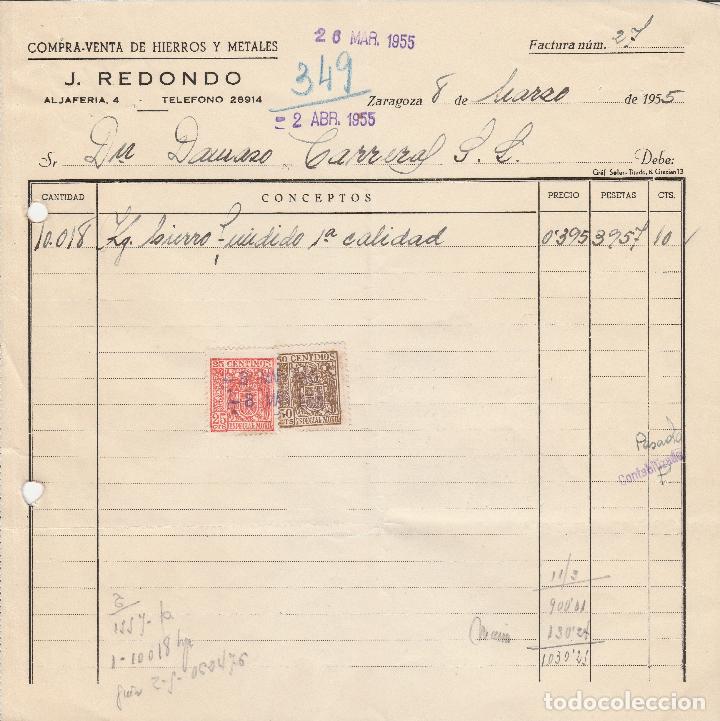 COMPRA-VENTA DE HIERROS Y METALES
J. REDONDO
ALJAFERIA, 4 — TELEFONO 28914
26 MAR. 1955
349
2 ABR. 1955
Factura núm. 27
Zaragoza 8 de Marzo de 1955
Sr Dn Damaso Carreras S. L. Debe:
CANTIDAD CONCEPTOS PRECIO PESETAS CTS.
10.018 Kg. hierro fundido 1ª calidad 0'395 3957 10
25 CENTIMOS
25 CTS
ESPECIAL MOVIL
50 CENTIMOS
50 CTS
ESPECIAL MOVIL
Pasado
Contabilizado
11/3
900'01
130'24
1030'25
1-10018 kgs